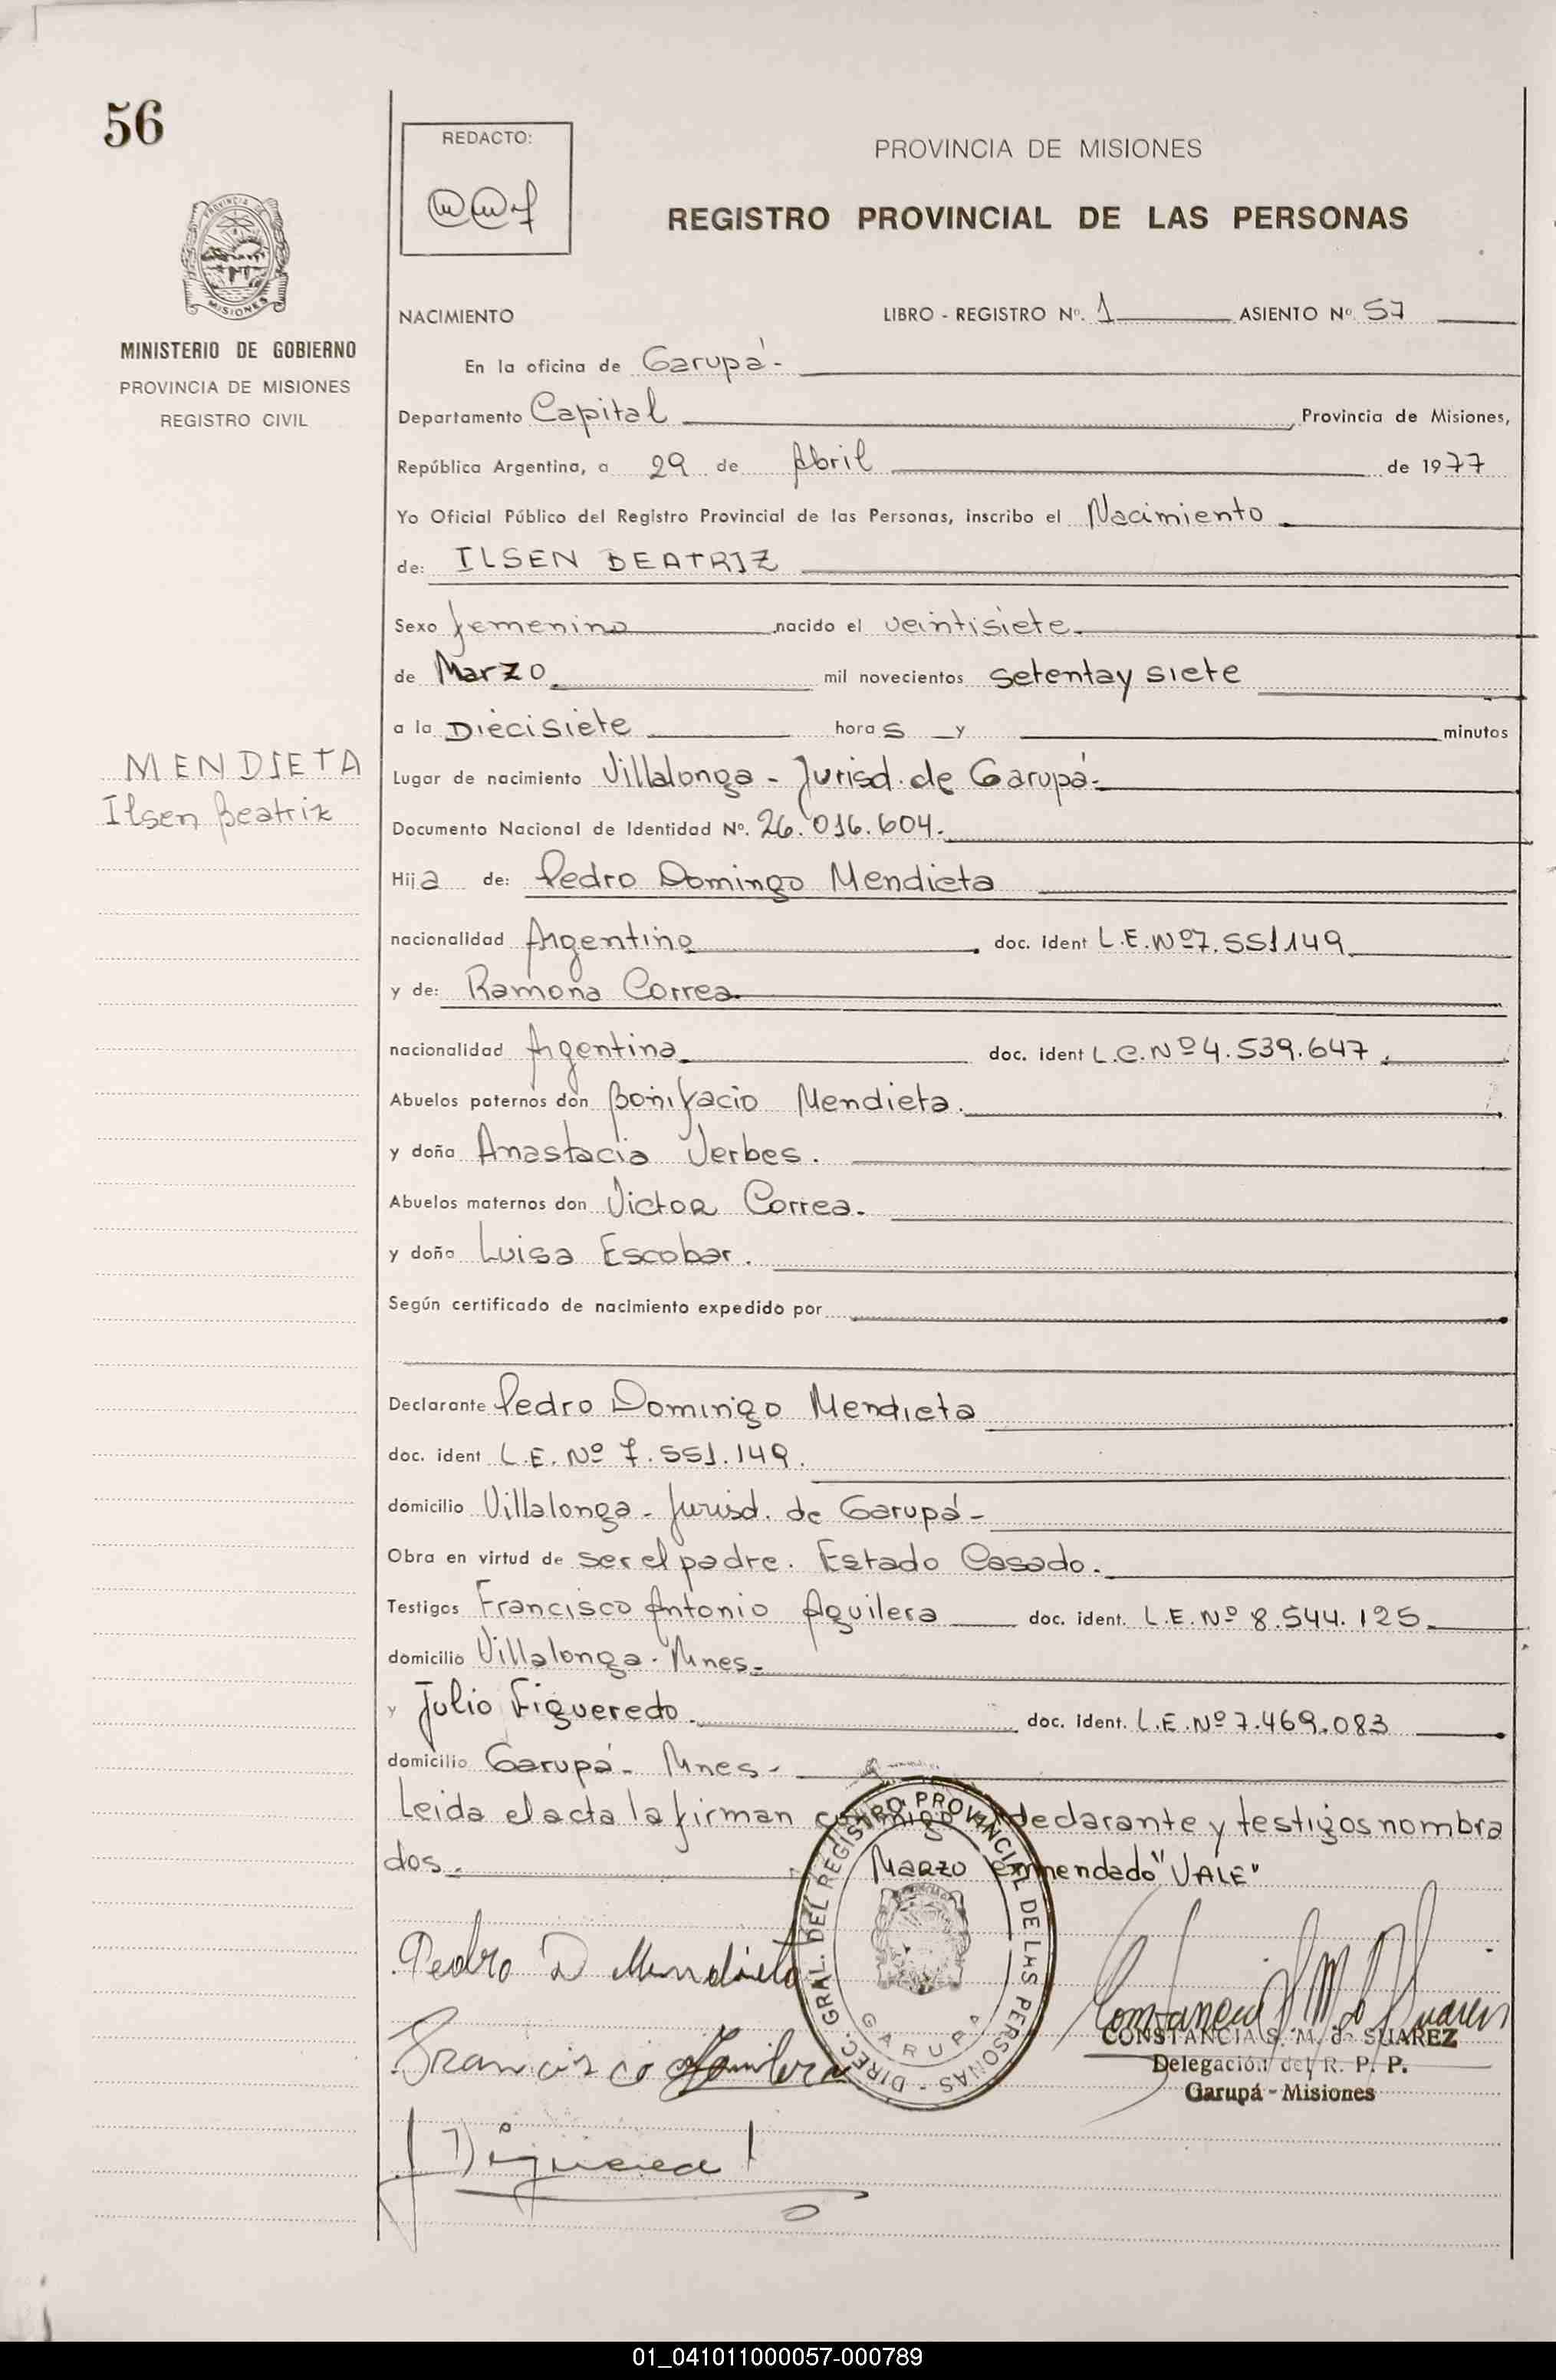 56
REDACTO:
PROVINCIA DE MISIONES
REGISTRO PROVINCIAL DE LAS PERSONAS
PROVINCIA DE
MISIONES
MINISTERIO DE GOBIERNO
PROVINCIA DE MISIONES
REGISTRO CIVIL
NACIMIENTO LIBRO - REGISTRO Nº. 1 ASIENTO Nº 57
En la oficina de Garupá-
Departamento Capital, Provincia de Misiones,
República Argentina, a 29 de Abril de 1977
Yo Oficial Público del Registro Provincial de las Personas, inscribo el Nacimiento
de: ILSEN BEATRIZ
Sexo femenino nacido el veintisiete
de Marzo mil novecientos setentay siete
a la Diecisiete horas y minutos
MENDIETA
Ilsen Beatriz
Lugar de nacimiento Villalonga - Jurisd. de Garupá-
Documento Nacional de Identidad Nº. 26.016.604.
Hija de: Pedro Domingo Mendieta
nacionalidad Argentino doc. ident L.E. Nº 7.551149
y de: Ramona Correa
nacionalidad Argentina doc. ident L.C. Nº 4.539.647
Abuelos paternos don Bonifacio Mendieta.
y doña Anastacia Verbes.
Abuelos maternos don Victor Correa.
y doña Luisa Escobar.
Según certificado de nacimiento expedido por
Declarante Pedro Domingo Mendieta
doc. ident L.E. Nº 7.551.149.
domicilio Villalonga - Jurisd. de Garupá-
Obra en virtud de ser el padre. Estado Casado.
Testigos Francisco Antonio Aguilera doc. ident. L.E. Nº 8.544.125
domicilio Villalonga - Mnes-
y Julio Figueredo. doc. ident. L.E. Nº 7.469.083
domicilio Garupá - Mnes-
Leida el acta la firman conmigo declarante y testigos nombra
dos. Marzo enmendado "VALE"
DIREC. GRAL. DEL REGISTRO PROVINCIAL DE LAS PERSONAS -
GARUPA
Pedro D Mendieta
Francisco Aguilera
CONSTANCIA S. M. de SUAREZ
Delegación del R. P. P.
Garupá - Misiones
01_041011000057-000789